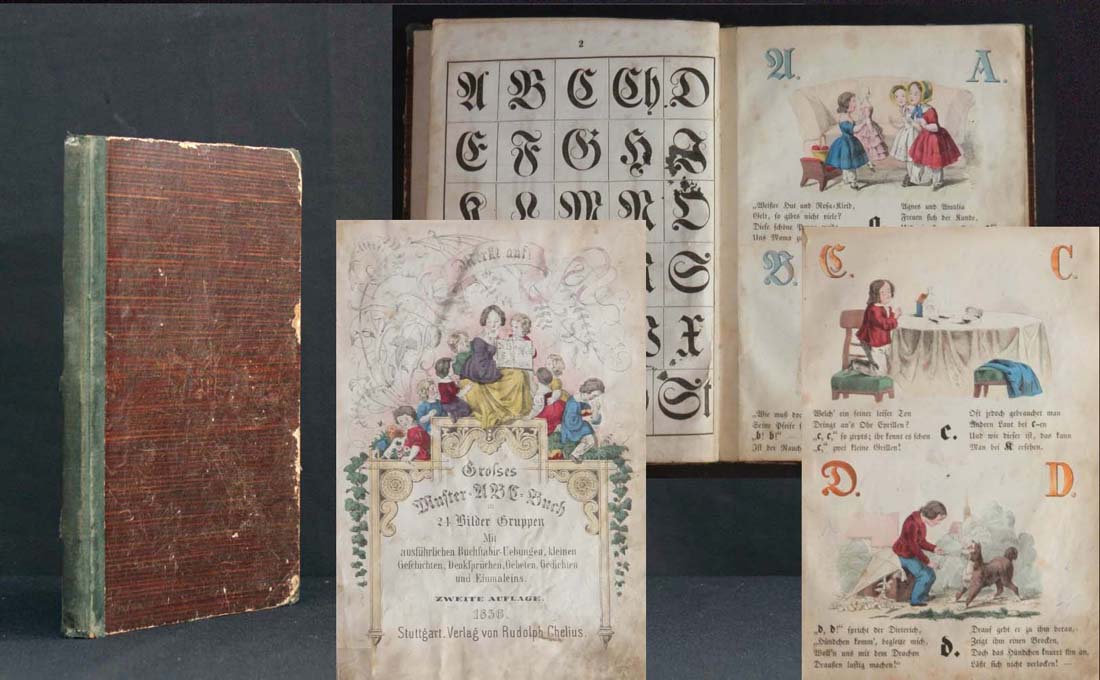 2
A B C Ch D
E F G H J
K L M N O
S
X
St
A. A.
„Weißer Hut und Rosa-Kleid,
Gelt, so gibts nicht viele?
Diese schöne
Uns Mama
a
Agnes und Amalia
Freuen sich der Kunde,
B.
„Wie muß
Seine Pfeife
„b! b!“ —
Ist der Rauch
Merkt auf!
Grosses
Muster-ABC-Buch
in
24 Bilder Gruppen
Mit
ausführlichen Buchstabir-Uebungen, kleinen
Geschichten, Denksprüchen, Gebeten, Gedichten
und Einmaleins.
ZWEITE AUFLAGE.
1858.
Stuttgart. Verlag von Rudolph Chelius.
C. C.
Welch' ein feiner leiser Ton
Dringt an's Ohr Cyrillen?
„c, c,“ so zirpts; ihr kennt es schon
„c,“ zwei kleine Grillen!
c.
Oft jedoch gebrauchet man
Andern Laut bei c-en
Und wie dieser ist, das kann
Man bei K ersehen.
D. D.
„d, d!“ spricht der Dieterich,
„Hündchen komm', begleite mich,
Woll'n uns mit dem Drachen
Draußen lustig machen!“
d.
Drauf geht er zu ihm heran,
Zeigt ihm einen Brocken,
Doch das Hündchen knurrt ihn an,
Läßt sich nicht verlocken! —